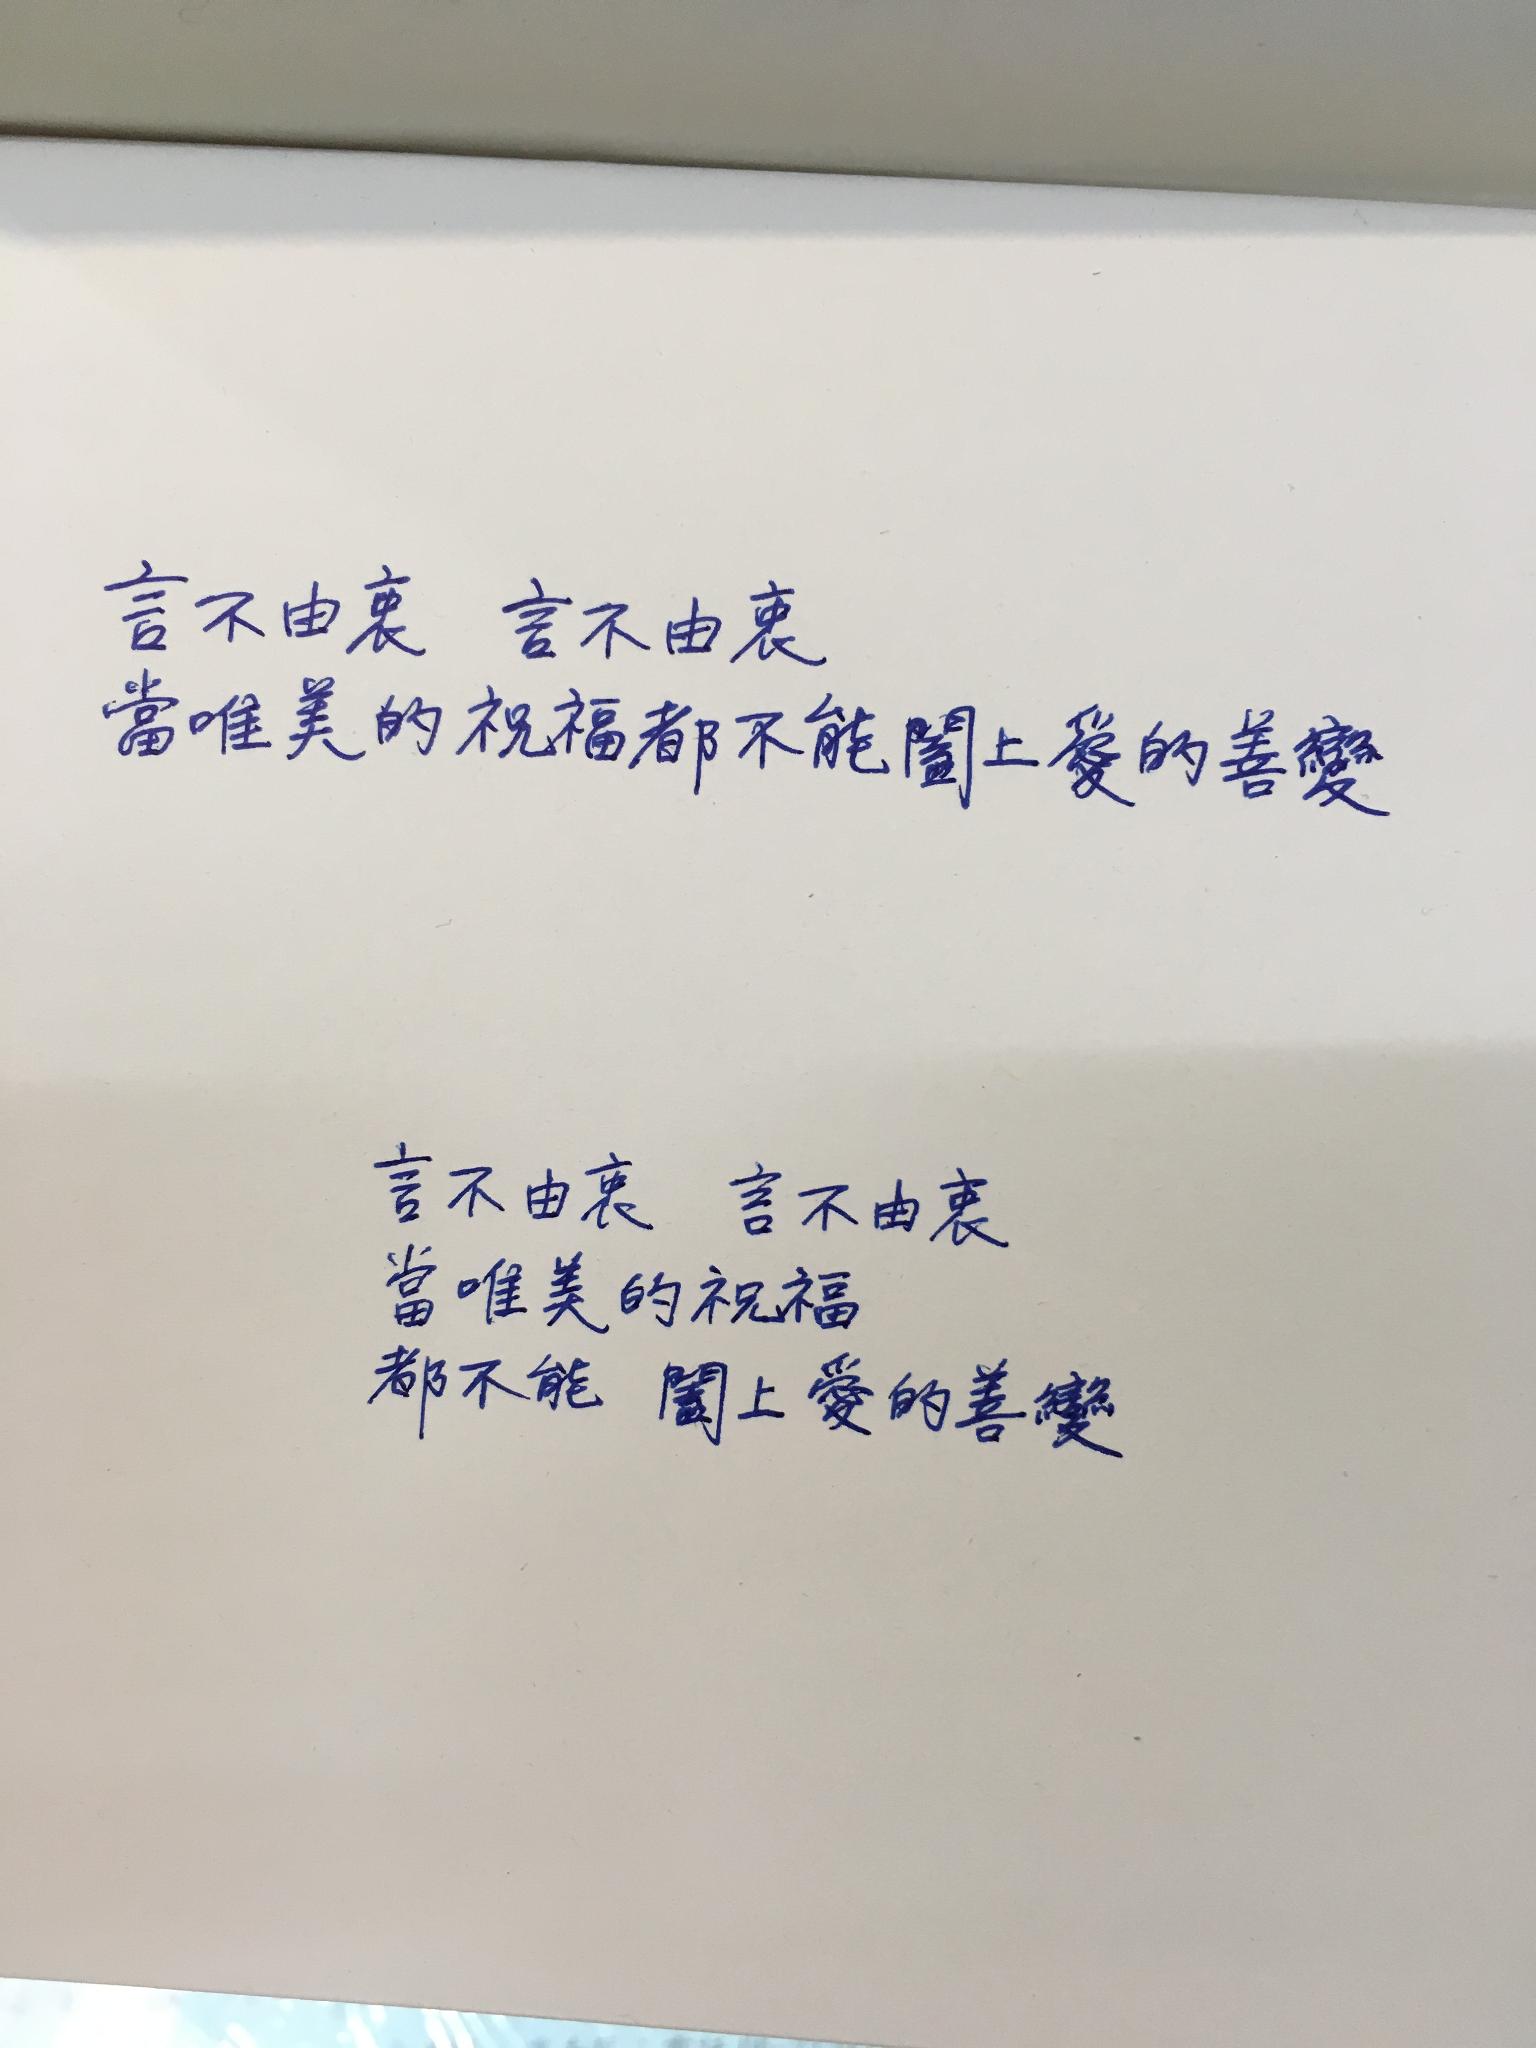 言不由衷　言不由衷
當唯美的祝福都不能闔上愛的善變
言不由衷　言不由衷
當唯美的祝福
都不能　闔上愛的善變